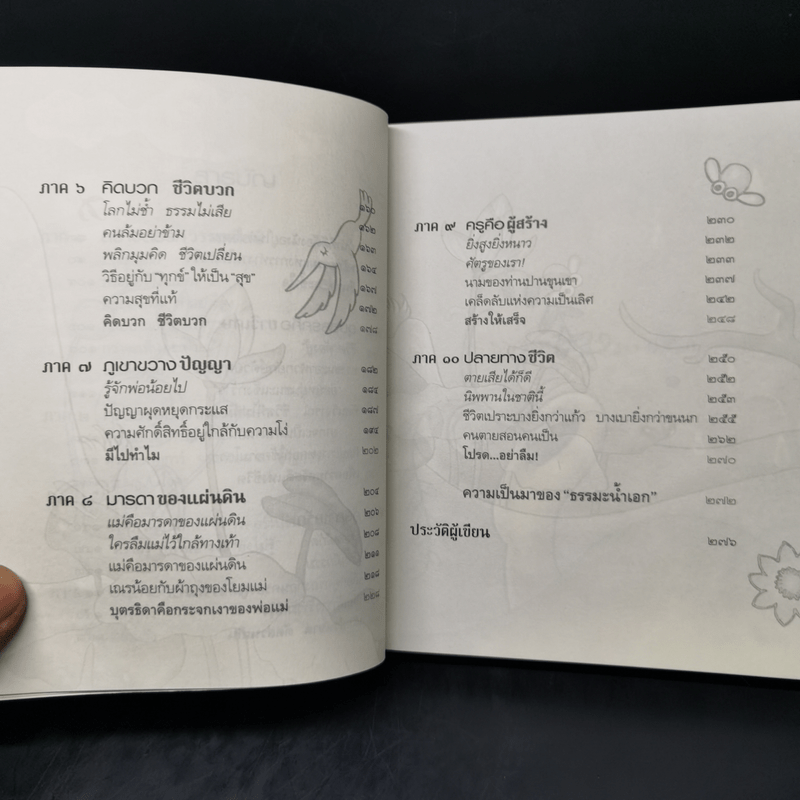 ภาค ๖ คิดบวก ชีวิตบวก ๑๖๐
โลกไม่ช้ำ ธรรมไม่เสีย ๑๖๒
คนล้มอย่าข้าม ๑๖๓
พลิกมุมคิด ชีวิตเปลี่ยน ๑๖๔
วิธีอยู่กับ "ทุกข์" ให้เป็น "สุข" ๑๖๗
ความสุขที่แท้ ๑๗๒
คิดบวก ชีวิตบวก ๑๗๘
ภาค ๗ ภูเขาขวาง ปัญญา ๑๘๒
รู้จักพ่อน้อยไป ๑๘๔
ปัญญาผุดหยุดกระแส ๑๘๗
ความศักดิ์สิทธิ์อยู่ใกล้กับความโง่ ๑๙๔
มีไปทำไม ๒๐๒
ภาค ๘ มารดา ของแผ่นดิน ๒๐๔
แม่คือมารดาของแผ่นดิน ๒๐๖
ใครลืมแม่ไว้ใกล้ทางเท้า ๒๐๘
แม่คือมารดาของแผ่นดิน ๒๑๑
เณรน้อยกับผ้าถุงของโยมแม่ ๒๑๘
บุตรธิดาคือกระจกเงาของพ่อแม่ ๒๒๘
ภาค ๙ ครูคือ ผู้สร้าง ๒๓๐
ยิ่งสูงยิ่งหนาว ๒๓๒
ศัตรูของเรา! ๒๓๓
นามของท่านปานขุนเขา ๒๓๗
เคล็ดลับแห่งความเป็นเลิศ ๒๔๒
สร้างให้เสร็จ ๒๔๘
ภาค ๑๐ ปลายทาง ชีวิต ๒๕๐
ตายเสียได้ก็ดี ๒๕๒
นิพพานในชาตินี้ ๒๕๓
ชีวิตเปราะบางยิ่งกว่าแก้ว บางเบายิ่งกว่าขนนก ๒๕๕
คนตายสอนคนเป็น ๒๖๒
โปรด...อย่าลืม! ๒๗๐
ความเป็นมาของ "ธรรมะน้ำเอก" ๒๗๒
ประวัติผู้เขียน ๒๗๖